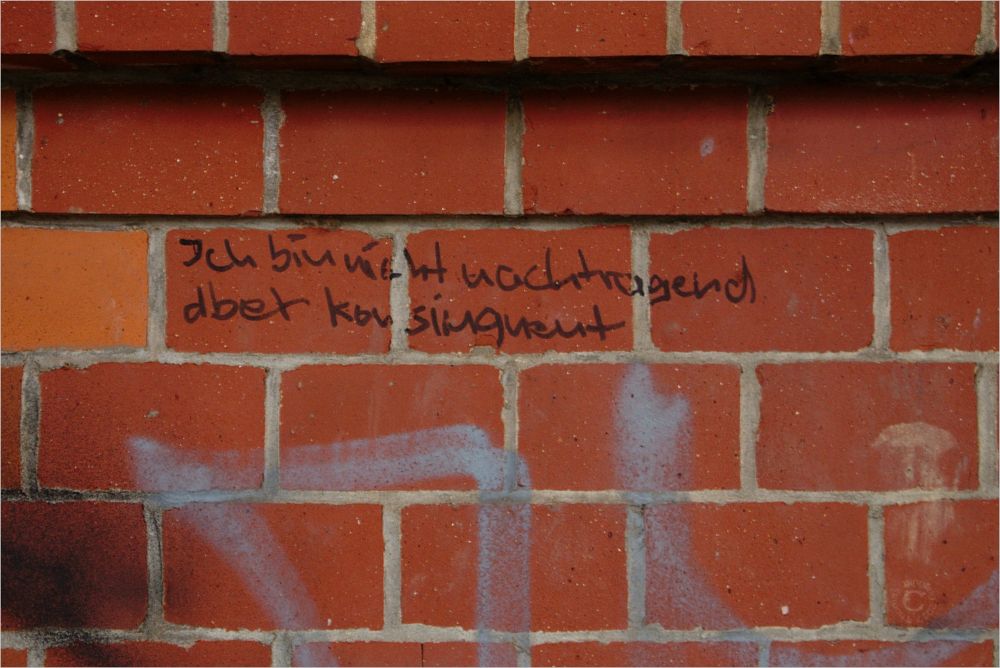 Ich bin nicht nachtragend
aber konsinquent